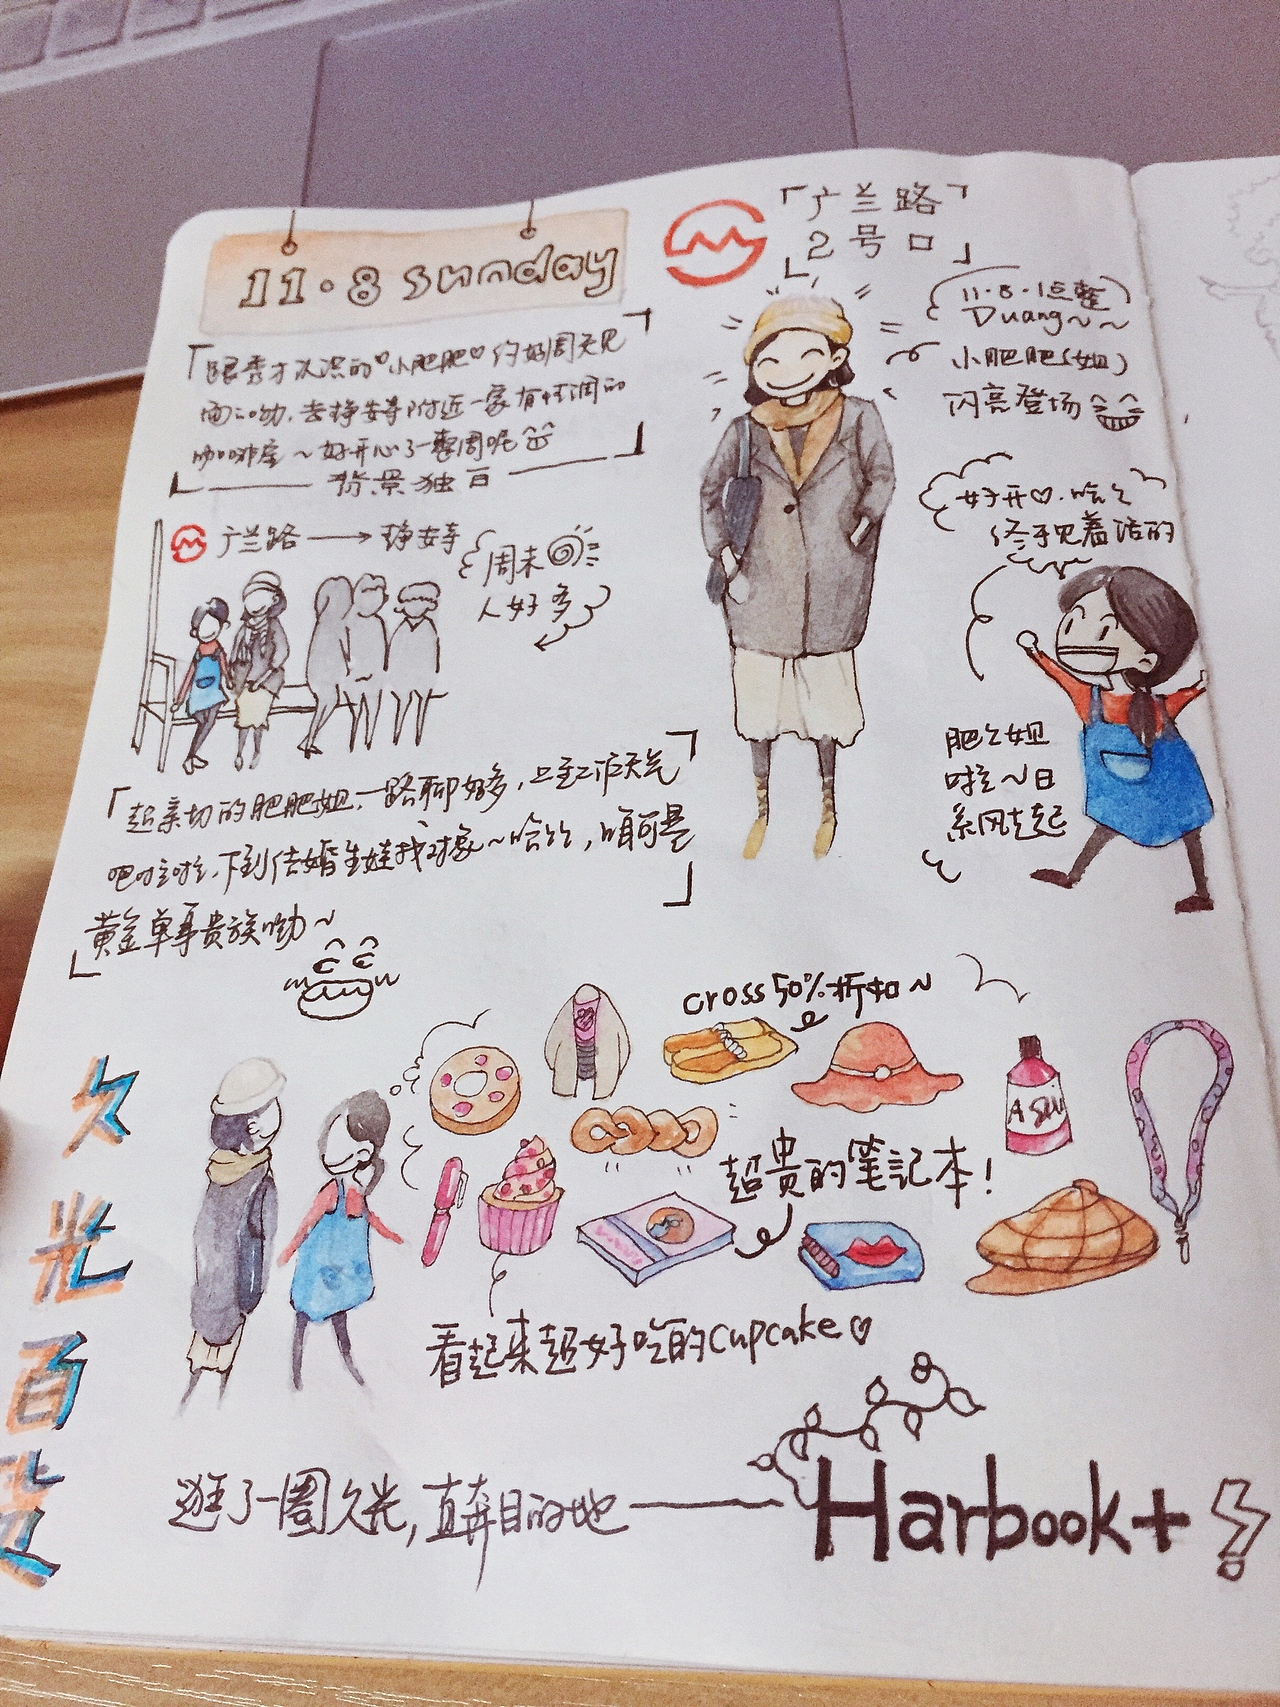 11·8 sunday
「跟秀才认识的♡小肥肥♡约好周天见
面了呦,去静安寺附近一家有情调的
咖啡店~好开心了一整周呢
背景独白
「广兰路
2号口」
11·8·1点整
Duang~~
小肥肥(姐)
闪亮登场
好开♡.哈哈
终于见着活的
肥肥姐
啦~日
系风走起
广兰路→静安寺
周末
人好多
「超亲切的肥肥姐,一路聊好多,上至工作天气
吧啦啦,下到结婚生娃找对象~哈哈,咱可是
黄金单身贵族呦~」
久光百货
cross50%折扣~
A SW
超贵的笔記本!
看起来超好吃的cupcake♡
逛了一圈久光,直奔目的地——Harbook+